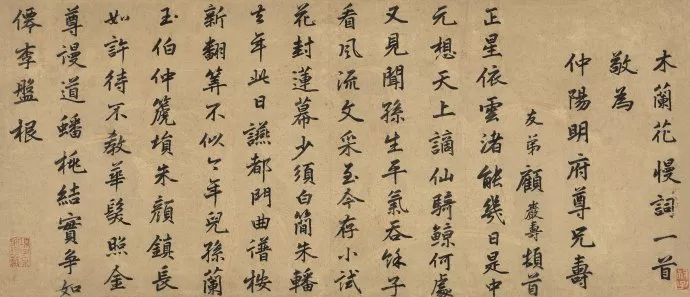 木蘭花慢詞一首
敬為
仲陽明府尊兄壽
友弟顧巖壽頓首
正星依雲渚能幾日是中
元想天上謫仙騎鯨何處
又見聞孫生平氣吞餘子
看風流文采至今存小試
花封蓮幕少須白簡朱轓
去年此日讌都門曲譜按
新翻筭不似今年兒孫蘭
玉伯仲篪塤朱顏鎮長
如許待不教華髮照金
尊謾道蟠桃結實爭如
僊李盤根